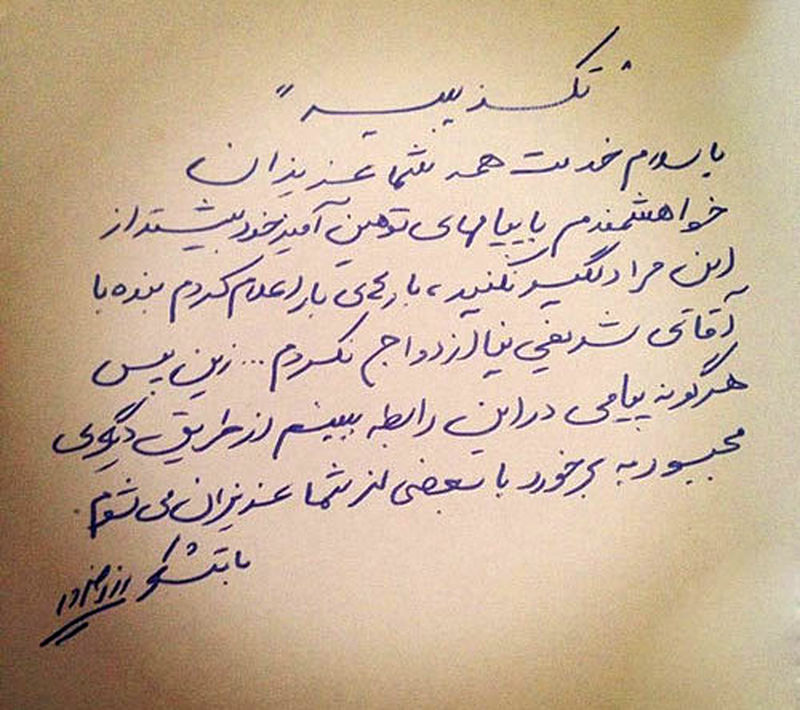 "تکذیبیه"
با سلام خدمت همه شما عزیزان
خواهشمندم با پیامهای توهین آمیز خود بیشتر از
این مرا دلگیر نکنید، بارها ی بار اعلام کردم بنده با
آقای شریفی نیا ازدواج نکردم... زین پس
هرگونه پیامی در این رابطه ببینم از طریق دیگری
مجبور به برخورد با بعضی از شما عزیزان می شوم.
با تشکر